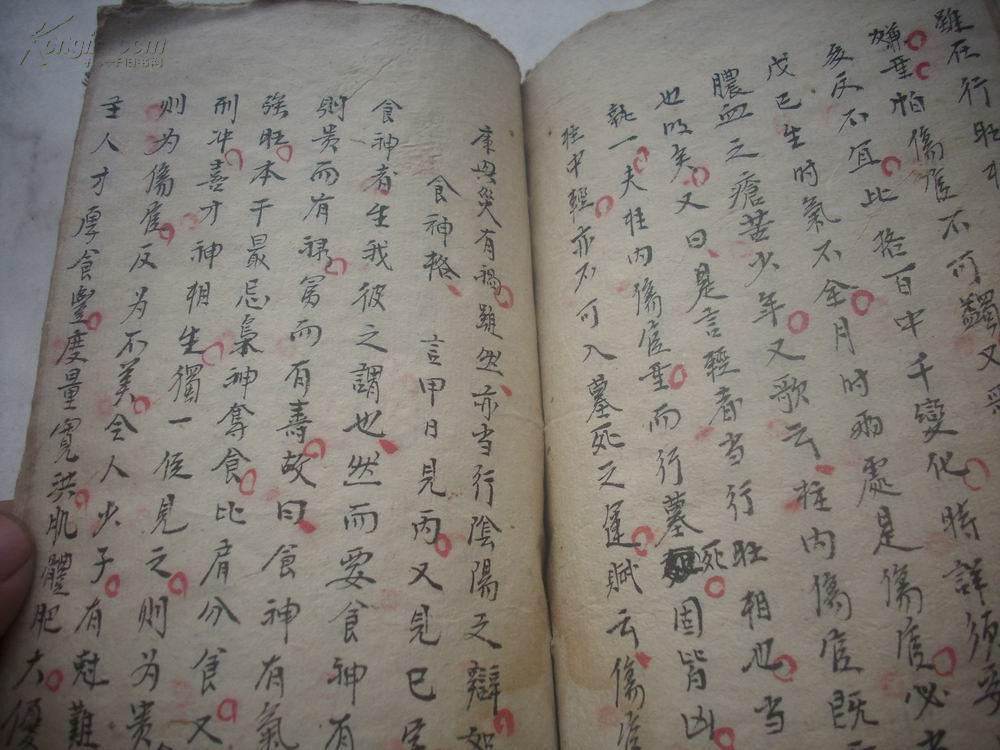 雖在行旺
嫌重怕傷官不可蠲又
亥反不宜比格百中千變化時詳須要
戊巳生時氣不全月时兩處是傷官必
膿血之瘡苦少年又歌云柱内傷官既
也明矣又曰是言輕者当行旺相也当
執一夫柱内傷官重而行墓死固皆凶
柱中輕亦不可入墓死之運賦云傷官
康與災有禍雖然亦当行陰陽之辯
食神格 言甲日見丙又見巳
食神者生我彼之謂也然而要食神有
則贵而有禄富而有壽故曰食神有氣
強旺本干最忌梟神奪食比肩分食又
刑冲喜才神相生獨一位見之則为贵
则为傷官反为不美令人少子有尅難
主人才厚食豐度量寬洪肌體肥大優
Kongfz.com